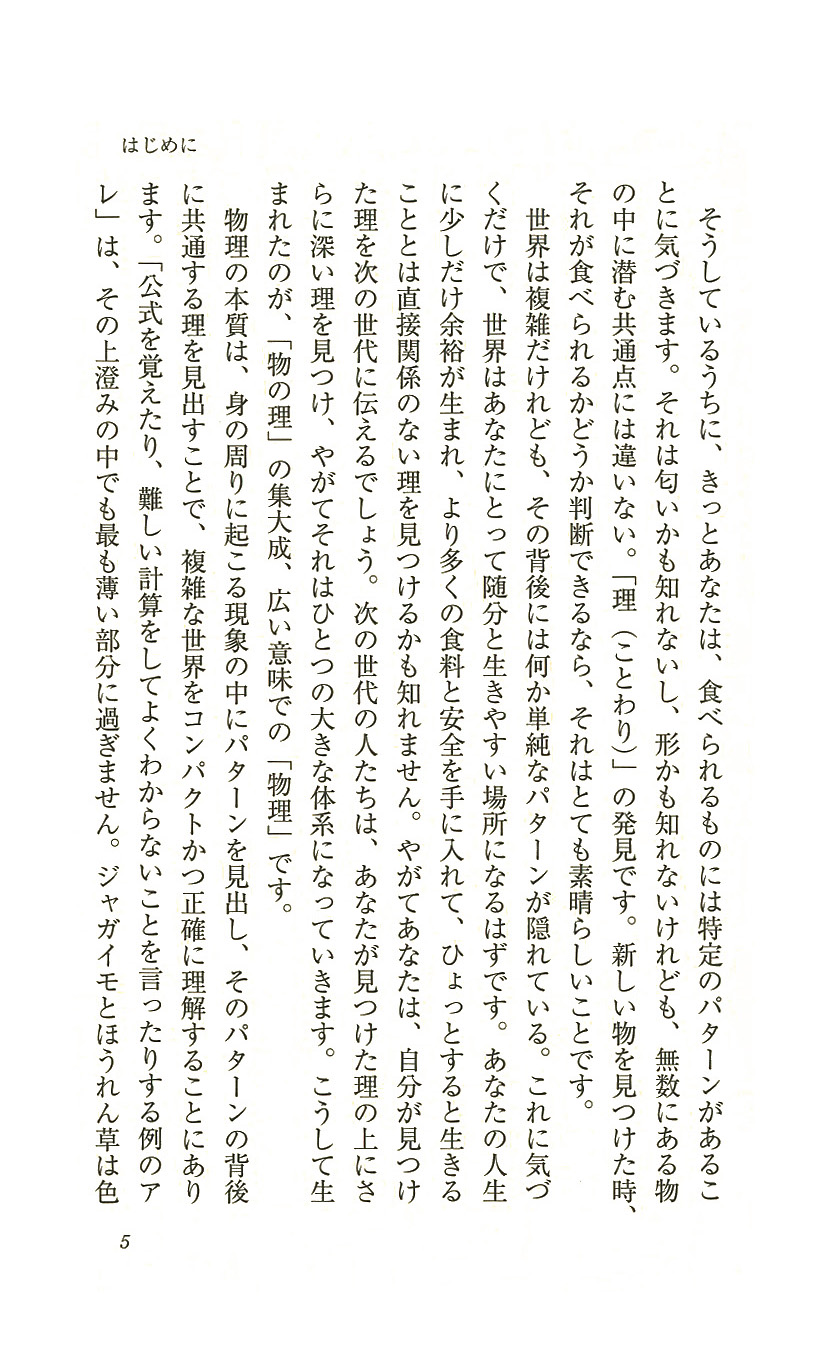 はじめに
そうしているうちに、きっとあなたは、食べられるものには特定のパターンがあるこ
とに気づきます。それは匂いかも知れないし、形かも知れないけれども、無数にある物
の中に潜む共通点には違いない。「理（ことわり）」の発見です。新しい物を見つけた時、
それが食べられるかどうか判断できるなら、それはとても素晴らしいことです。
世界は複雑だけれども、その背後には何か単純なパターンが隠れている。これに気づ
くだけで、世界はあなたにとって随分と生きやすい場所になるはずです。あなたの人生
に少しだけ余裕が生まれ、より多くの食料と安全を手に入れて、ひょっとすると生きる
こととは直接関係のない理を見つけるかも知れません。やがてあなたは、自分が見つけ
た理を次の世代に伝えるでしょう。次の世代の人たちは、あなたが見つけた理の上にさ
らに深い理を見つけ、やがてそれはひとつの大きな体系になっていきます。こうして生
まれたのが、「物の理」の集大成、広い意味での「物理」です。
物理の本質は、身の周りに起こる現象の中にパターンを見出し、そのパターンの背後
に共通する理を見出すことで、複雑な世界をコンパクトかつ正確に理解することにあり
ます。「公式を覚えたり、難しい計算をしてよくわからないことを言ったりする例のア
レ」は、その上澄みの中でも最も薄い部分に過ぎません。ジャガイモとほうれん草は色
5